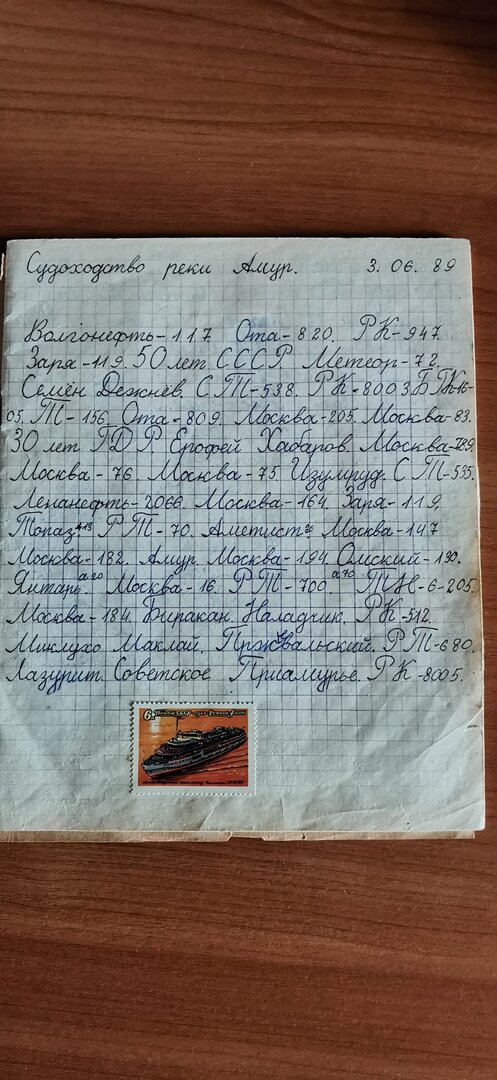 Судоходство реки Амур. 3. 06. 89
Волгонефть-117. Ота-820. РК-947.
Заря-119. 50 лет СССР. Метеор-72.
Семён Дежнёв. СТ-538. РК-8003. БПК-16-
05. Т-156. Ота-809. Москва-205. Москва-83.
30 лет ГДР. Ерофей Хабаров. Москва-189.
Москва-76. Москва-75. Изумруд. СТ-535.
Ленанефть-2066. Москва-164. Заря-119.
Топаз РТ-70. Аметист. Москва-147
Москва-182. Амур. Москва-194. Омский-130.
Янтарь. Москва-16. РТ-700. ТН-6-205.
Москва-184. Биракан. Наладчик. РК-512.
Миклухо Маклай. Пржевальский. РТ-680.
Лазурит. Советское Приамурье. РК-8005.
6к Почта СССР